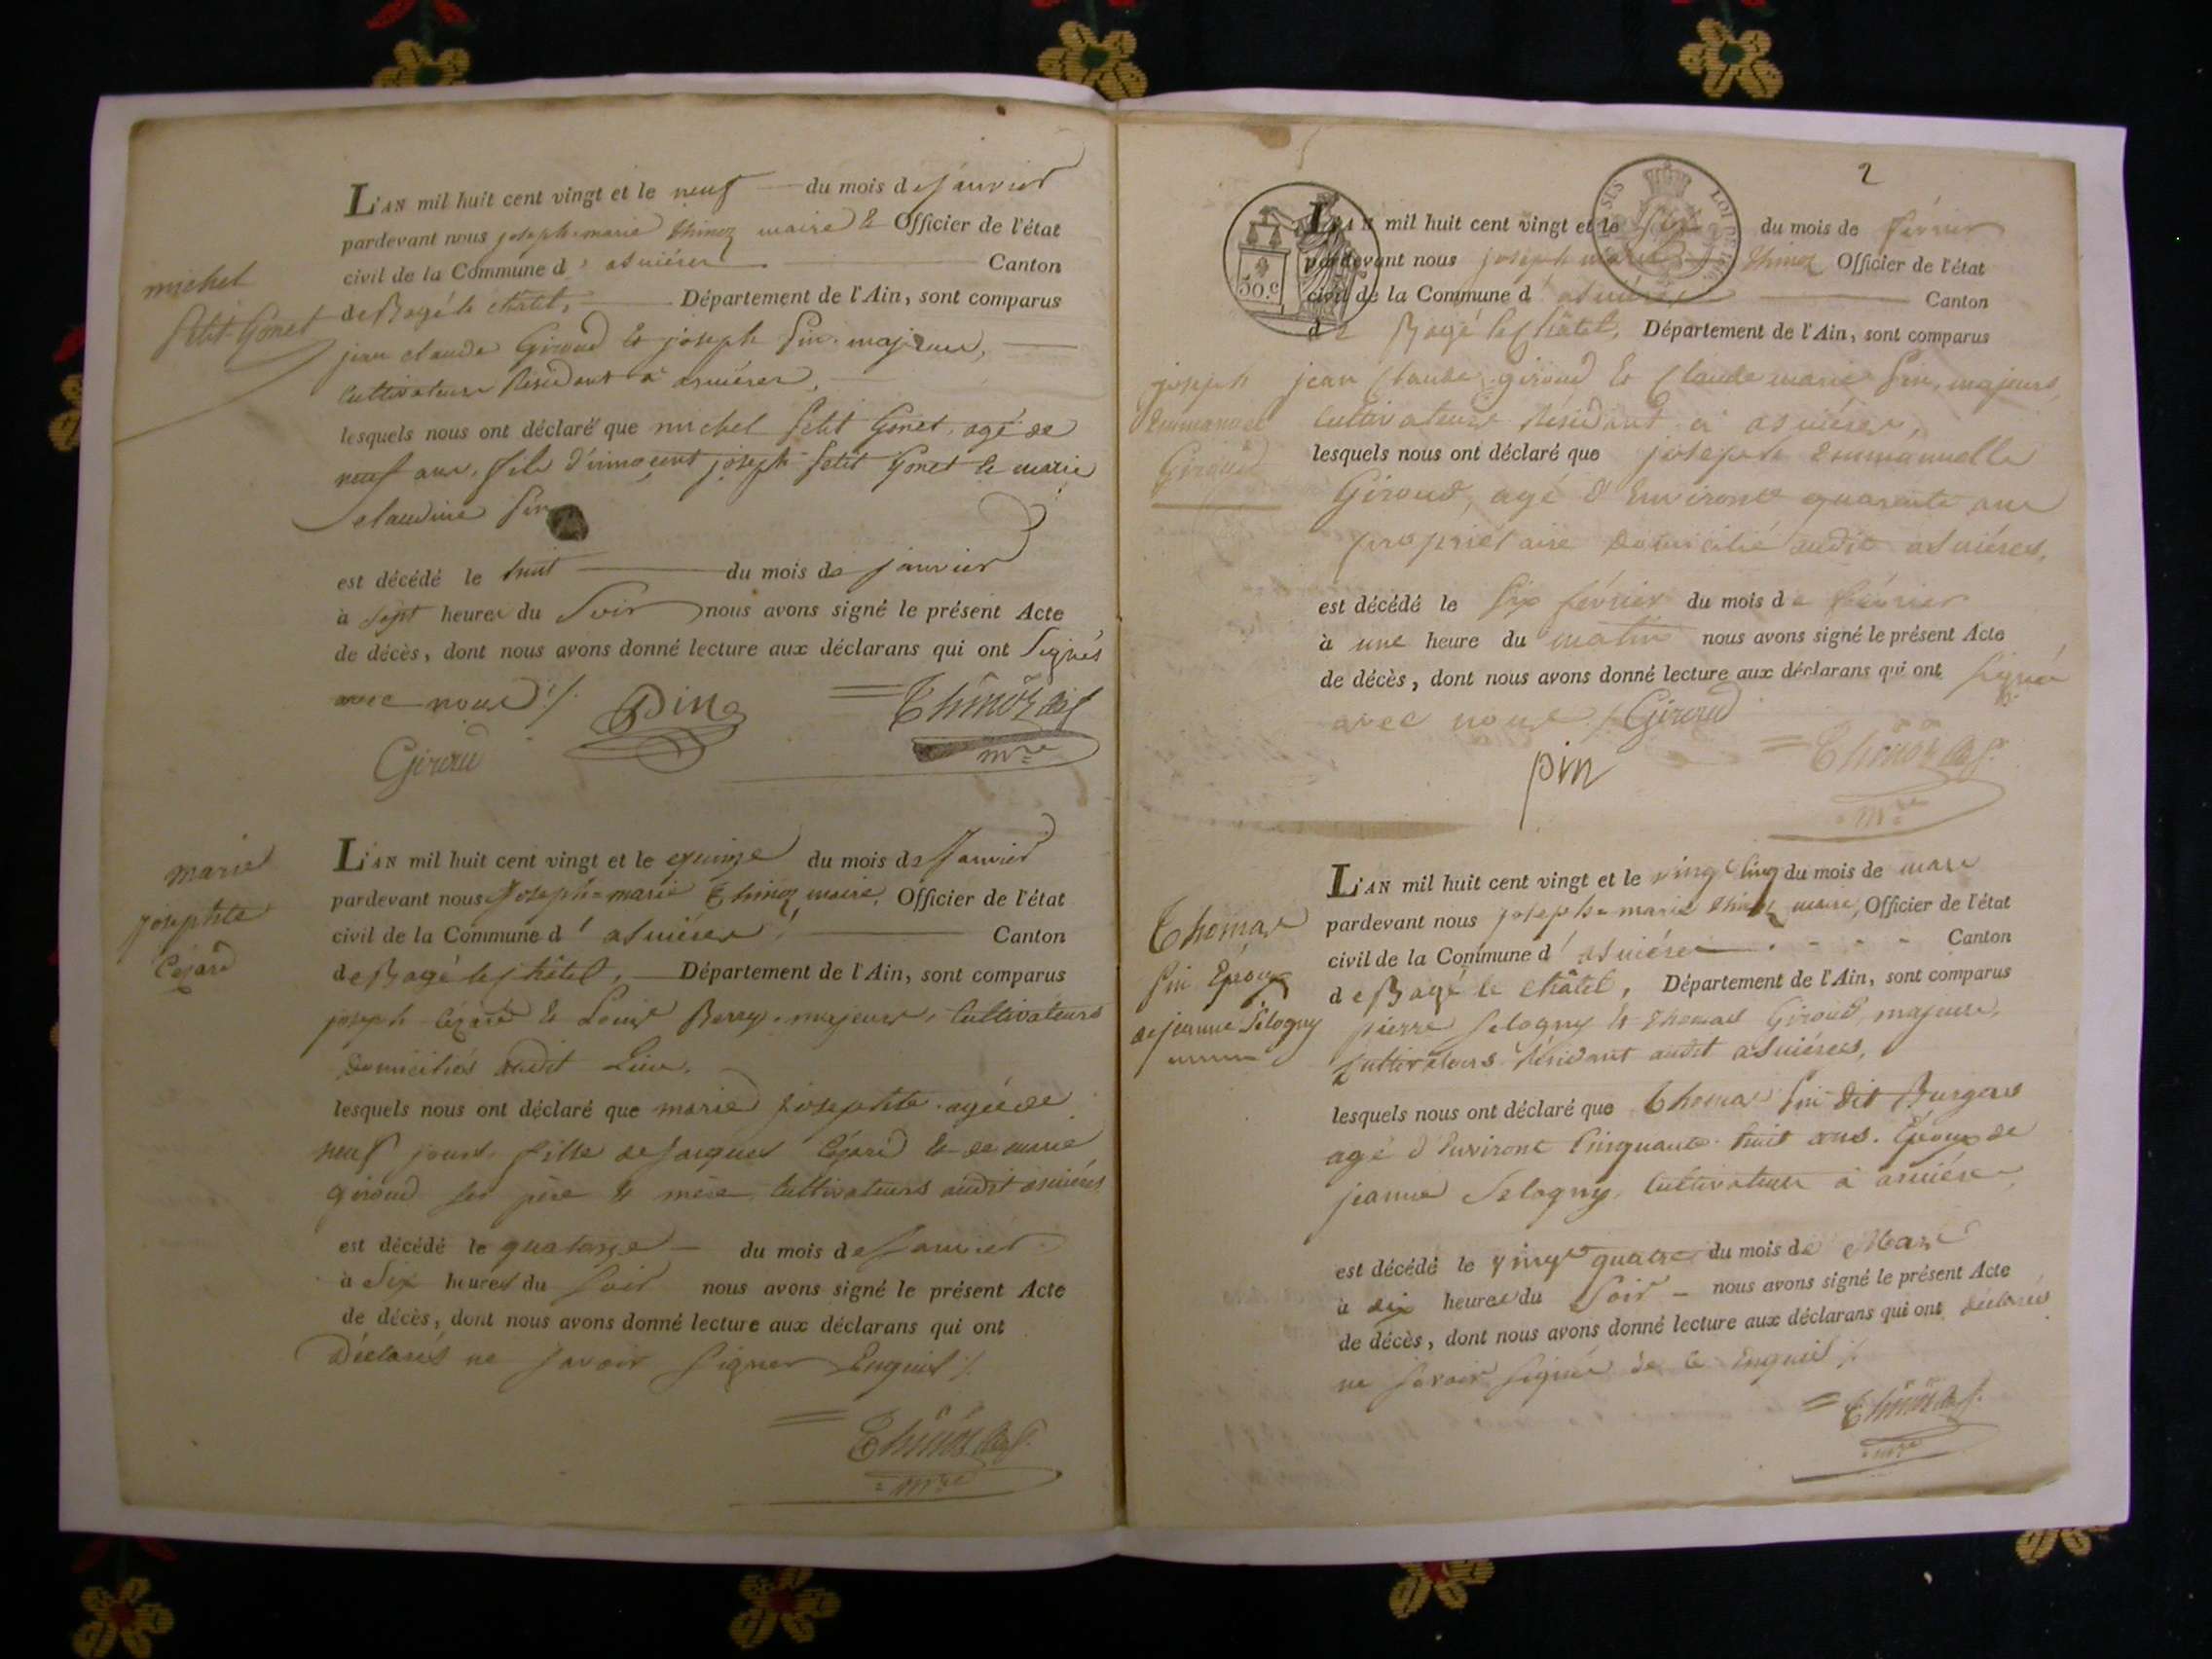 michel
Petit Gonet
L'AN mil huit cent vingt et le neuf du mois de janvier
pardevant nous joseph-marie Thinoz maire & Officier de l'état
civil de la Commune d' asnières Canton
de Bagé le Châtel, Département de l'Ain, sont comparus
jean claude Giroud & joseph Pin majeurs,
cultivateurs Résidant à asnières,
lesquels nous ont déclaré que michel Petit Gonet, agé de
neuf ans, fils d'innocent joseph Petit Gonet & marie
claudine Pin
est décédé le huit du mois de janvier
à sept heures du Soir nous avons signé le présent Acte
de décès, dont nous avons donné lecture aux déclarans qui ont Signés
avec nous ./.
Pin
Thinoz
Giroud
mre
marie
josephte
Cézard
L'AN mil huit cent vingt et le quinze du mois de Janvier
pardevant nous Joseph-marie Thinoz maire, Officier de l'état
civil de la Commune d' asnières Canton
de Bagé le Châtel, Département de l'Ain, sont comparus
joseph Cézard & Louis Berry, majeurs, Cultivateurs
domiciliés audit Lieu,
lesquels nous ont déclaré que marie josephte agée de
neuf jours, fille de Jacques Cézard & de marie
Giroud ses père & mère Cultivateurs audit asnières
est décédé le quatorze du mois de Janvier
à Six heures du Soir nous avons signé le présent Acte
de décès, dont nous avons donné lecture aux déclarans qui ont
Déclarés ne savoir signer Enquis ./.
Thinoz
mre
2
50.c
LOI DE 1816
joseph
Emmanuel
Giroud
L'AN mil huit cent vingt et le Six du mois de février
pardevant nous joseph marie Thinoz Officier de l'état
civil de la Commune d' asnières Canton
de Bagé le Châtel, Département de l'Ain, sont comparus
jean Claude giroud & Claude marie Pin, majeurs,
Cultivateurs Résidant à asnières,
lesquels nous ont déclaré que joseph Emmanuelle
Giroud, agé d'Environt quarante ans
propriétaire domicilié audit asnières,
est décédé le Six février du mois de février
à une heure du matin nous avons signé le présent Acte
de décès, dont nous avons donné lecture aux déclarans qui ont signés
avec nous ./. Giroud
Thinoz
pin
mre
Thomas
Pin Epoux
de jeanne Pelogny
L'AN mil huit cent vingt et le vingt cinq du mois de mars
pardevant nous joseph-marie Thinoz maire, Officier de l'état
civil de la Commune d' asnières Canton
de Bagé le Châtel, Département de l'Ain, sont comparus
pierre Pelogny & thomas Giroud, majeurs,
Cultivateurs Résidant audit asnières,
lesquels nous ont déclaré que Thomas Pin dit Burgers
agé d'Environt Cinquante huit ans. Epoux de
jeanne Pelogny, Cultivateur à asnières,
est décédé le vingt quatre du mois de Mars
à dix heures du Soir nous avons signé le présent Acte
de décès, dont nous avons donné lecture aux déclarans qui ont déclarés
ne savoir signer de ce Enquis ./.
Thinoz
mre